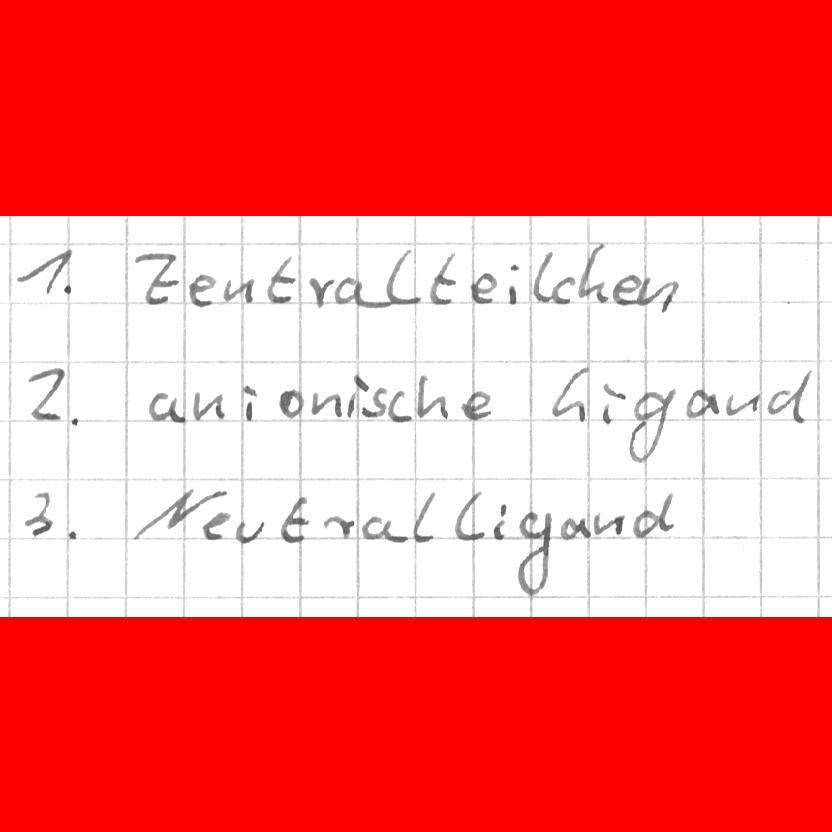 1. Zentralteilchen
2. anionische Ligand
3. Neutralligand